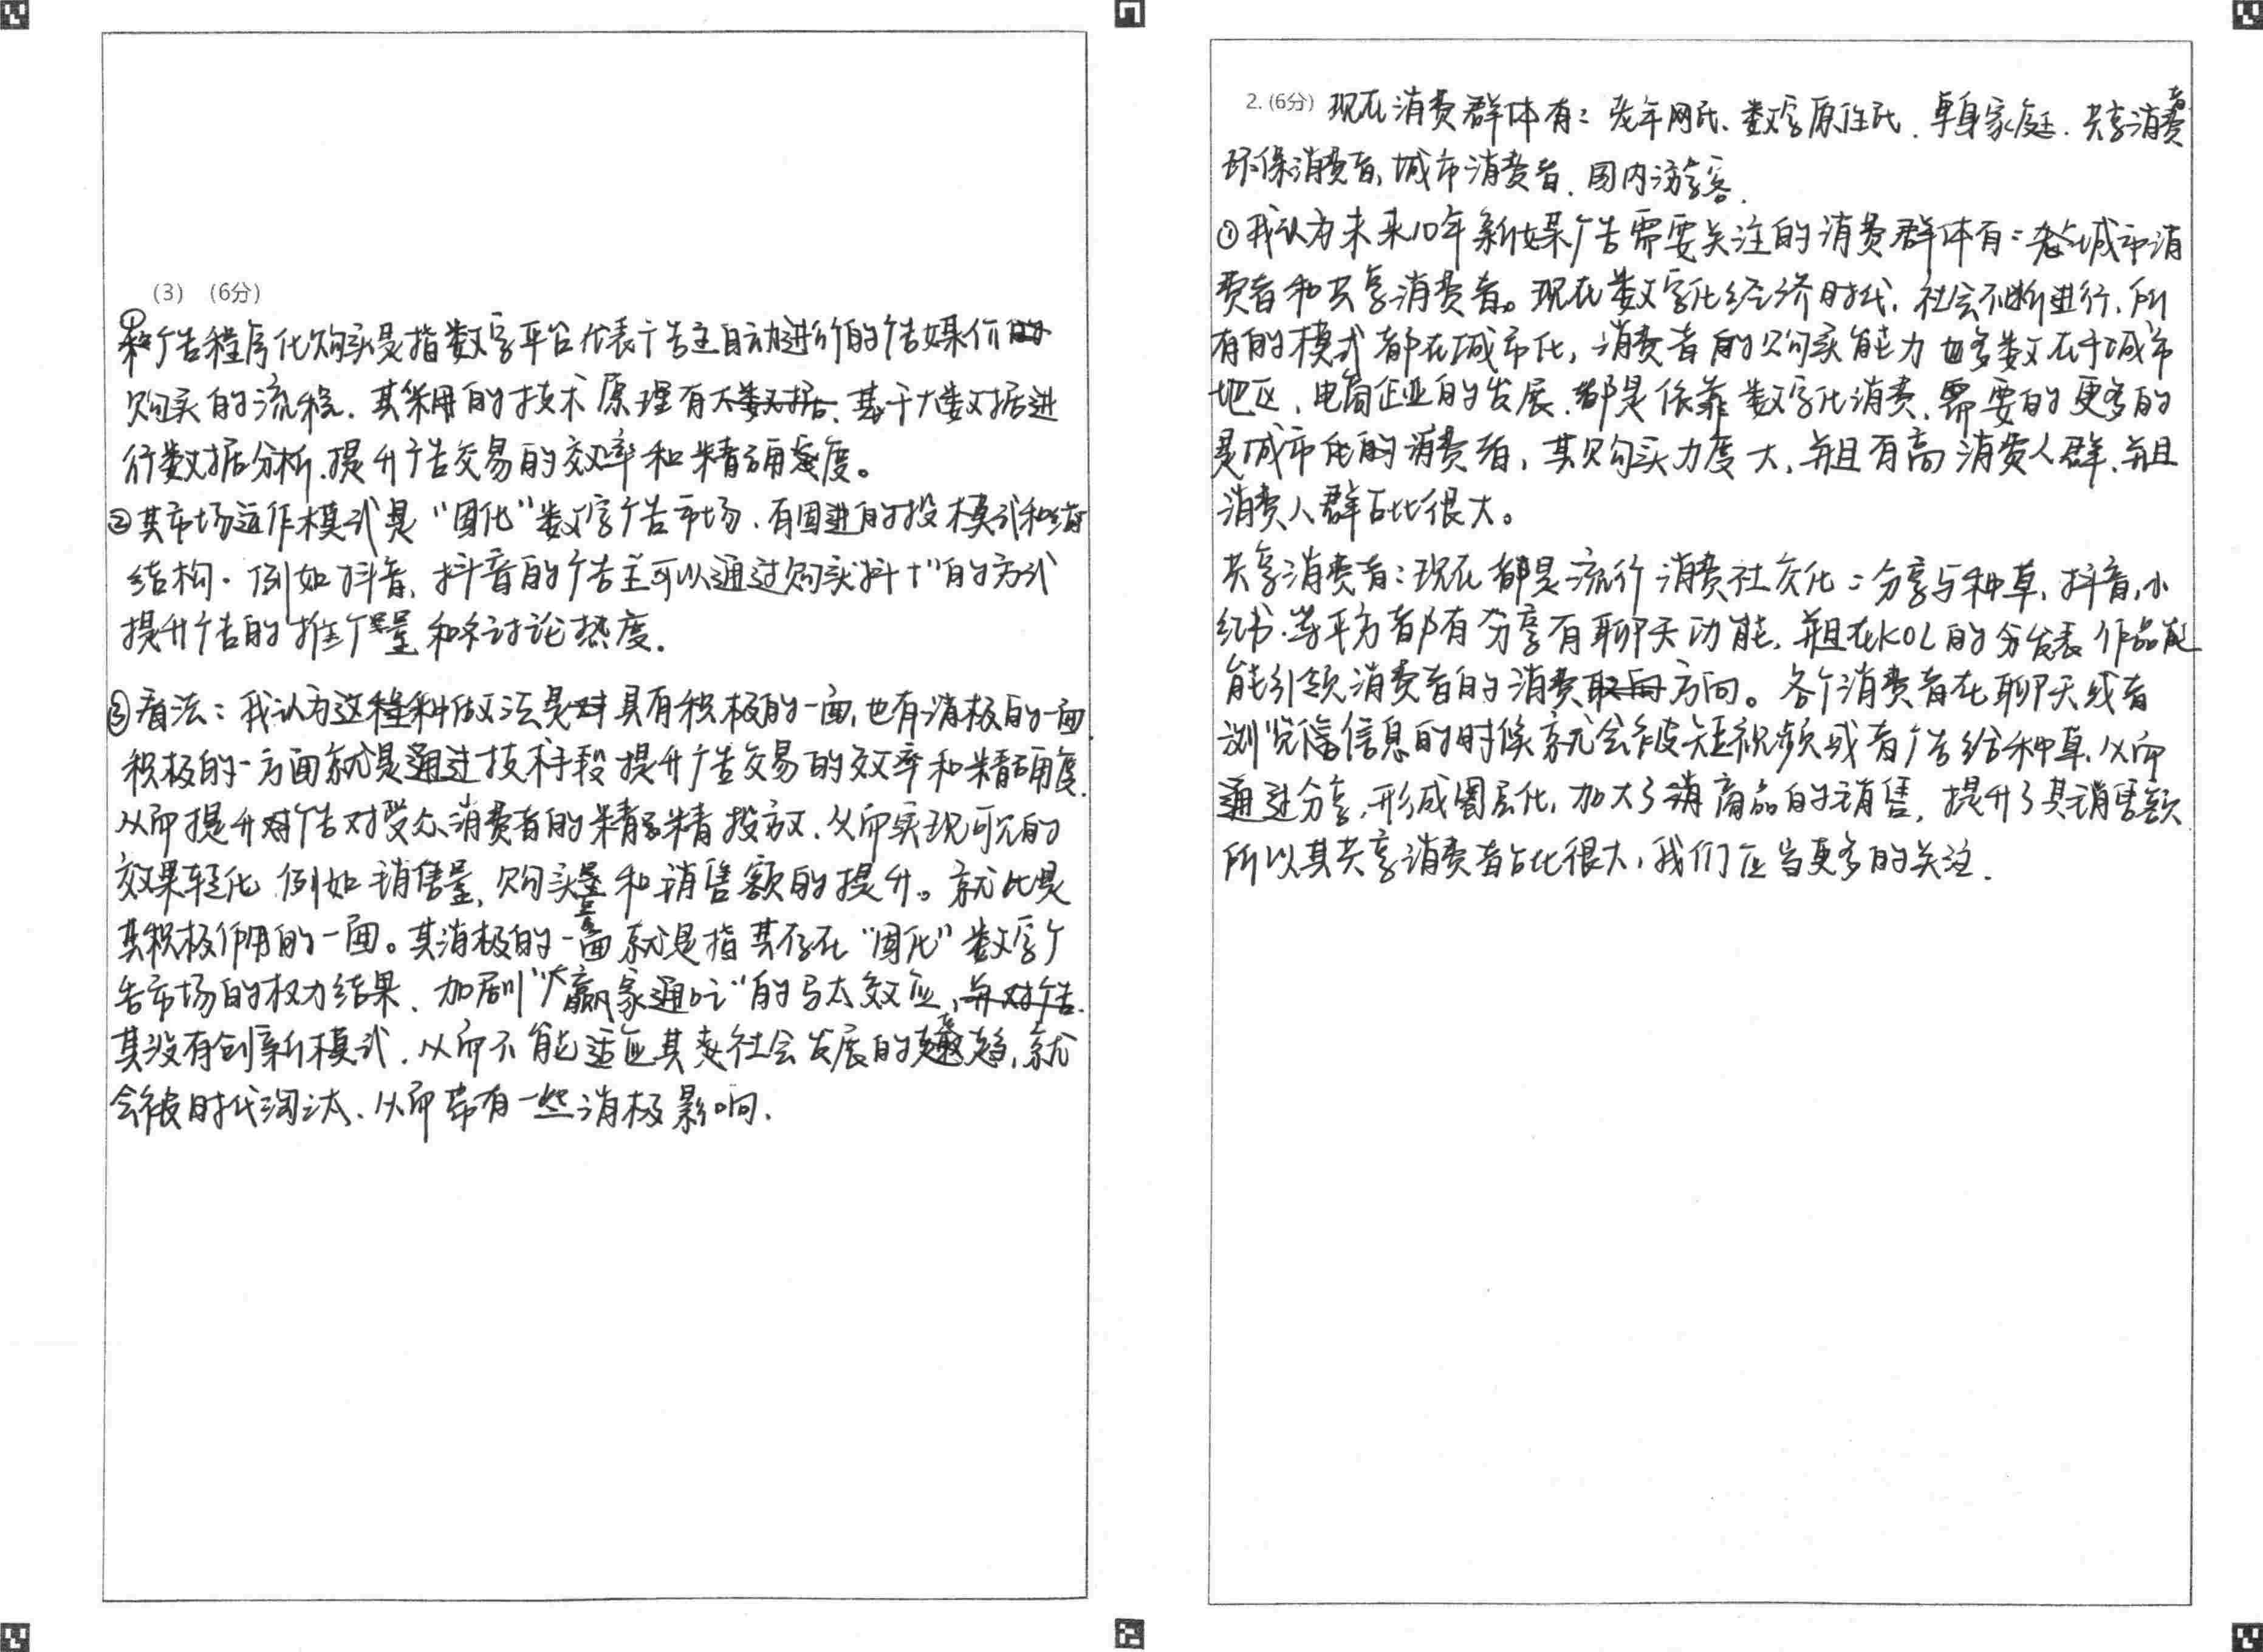 (3) (6分)
①广告程序化购买是指数字平台代表广告主自动进行的广告媒介
购买的流程. 其采用的技术原理有大数据. 基于大数据进
行数据分析.提升广告交易的效率和精确度。
②其市场运作模式是“固化”数字广告市场. 有固进的投模式和
结构. 例如抖音, 抖音的广告主可以通过购买抖+”的方式
提升广告的推广量和讨论热度.
③看法: 我认为这种做法是具有积极的一面,也有消极的一面.
积极的一方面就是通过技术手段提升广告交易的效率和精确度.
从而提升广告对受众、消费者的精投放. 从而实现可见的
效果转化 例如销售量, 购买量和销售额的提升。就此是
其积极作用的一面。其消极的一面就是指其存在“固化”数字广
告市场的权力结果. 加剧“大赢家通吃”的马太效应, 并对广告.
其没有创新模式. 从而不能适应其社会发展的, 就
会被时代淘汰. 从而带有一些消极影响.
2. (6分) 现在消费群体有: 老年网民、数字原住民. 单身家庭. 共享消费者
环保消费者, 城市消费者. 国内游客.
①我认为未来10年新媒广告需要关注的消费群体有: 城市消
费者和共享消费者。现在数字化经济时代. 社会不断进行, 所
有的模式都在城市化, 消费者的购买能力也多数在于城市
地区, 电商企业的发展. 都是依靠数字化消费, 需要的更多的
是城市化的消费者, 其购买力度大, 并且有高消费人群. 并且
消费人群占比很大。
共享消费者: 现在都是流行消费社交化: 分享与种草, 抖音,小
红书. 等平方都有分享有聊天功能, 并且在KOL的发表作品能
能引领消费者的消费取向方向。各个消费者在聊天或者
浏览信息的时候就会被短视频或者广告给种草, 从而
通过分享, 形成圈层化, 加大了商品的销售, 提升了其销售额
所以其共享消费者占比很大, 我们应当更多的关注.